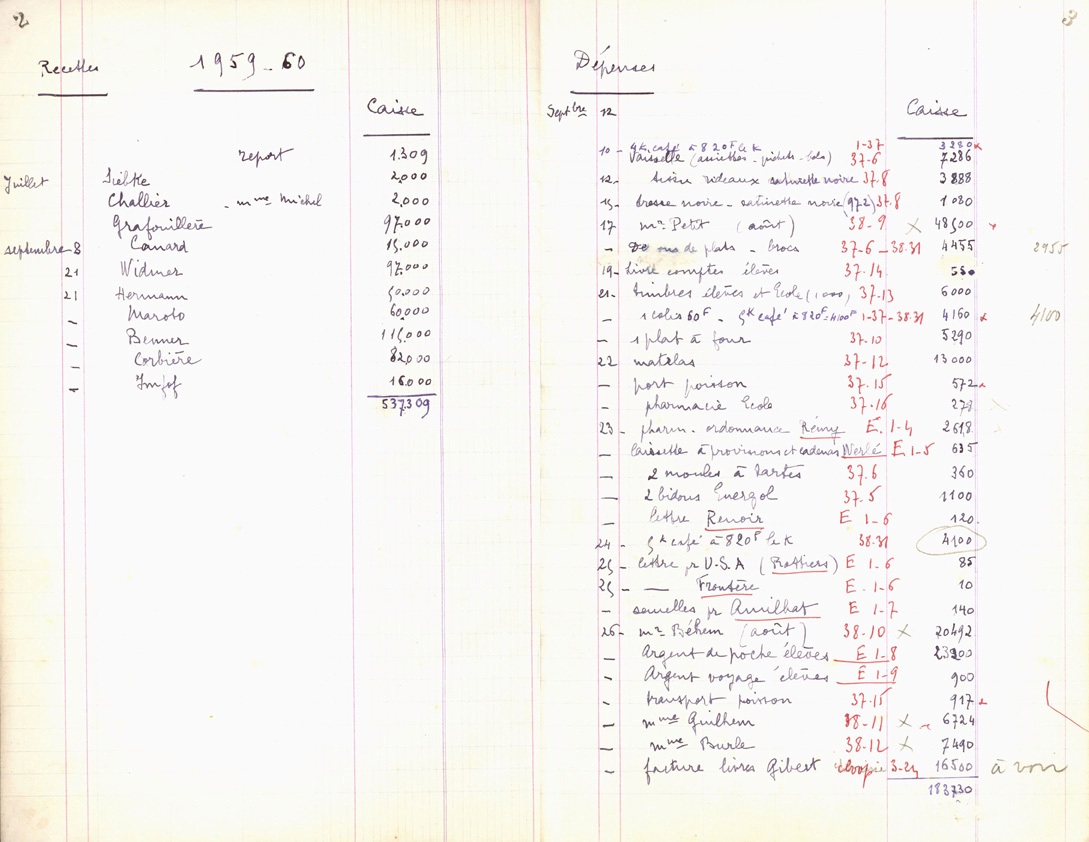 2
Recettes 1959-60
Caisse
report 1.309
Juillet Siebke 2,000
Challier - Mme Michel 2,000
Grafouillère 97.000
septembre 8 Canard 15.000
21 Widmer 97.000
21 Hermann 50.000
— Maroto 60,000
— Benner 115,000
— Corbière 82,000
— Imhof 16.000
537309
3
Dépenses
Septbre 12 Caisse
10 - 4k café à 820F le K 1-37 3280 x
Vaisselle (assiettes - pichets - bols) 37-6 7286
12 - tissu rideaux satinette noire 37.8 3888
15 - brosse noire - satinette noire (972) 37.8 1080
17 Mr Petit (août) 38-9 X 48500 x
— de plats - brocs 37-6-38.31 4455 2955
19 - Livre comptes élèves 37.14 550
21 - timbres élèves et Ecole (1000) 37-13 6000
— 1 colis 60F - 5k café à 820F=4100F 1-37-38.31 4160 x 4100
— 1 plat à four 37-10 5290
22 - matelas 37-12 13000
— port poisson 37.15 572 x
— pharmacie Ecole 37-16 278
23 - pharm. ordonnance Rémy E. 1-4 2618
— Caissette à provisions et cadenas Werlé E 1-5 635
— 2 moules à tartes 37.6 360
— 2 bidons Energol 37.5 1100
— lettre Renoir E 1-6 120
24 - 5k café à 820F le K 38.31 4100
25 - lettre pr U.S.A E 1-6 85
25 - — Frontère E. 1-6 10
— semelles pr Amilhat E 1-7 140
26 - Mr Béhem (août) 38-10 X 20492
— Argent de poche élèves E 1-8 23900
— Argent voyage élèves E 1-9 900
— transport poisson 37.15 917 x
— Mme Guilhem 38-11 X x 6724
— Mme Burle 38-12 X 7490
— facture livres Gibert 3-24 16500 à voir
183730